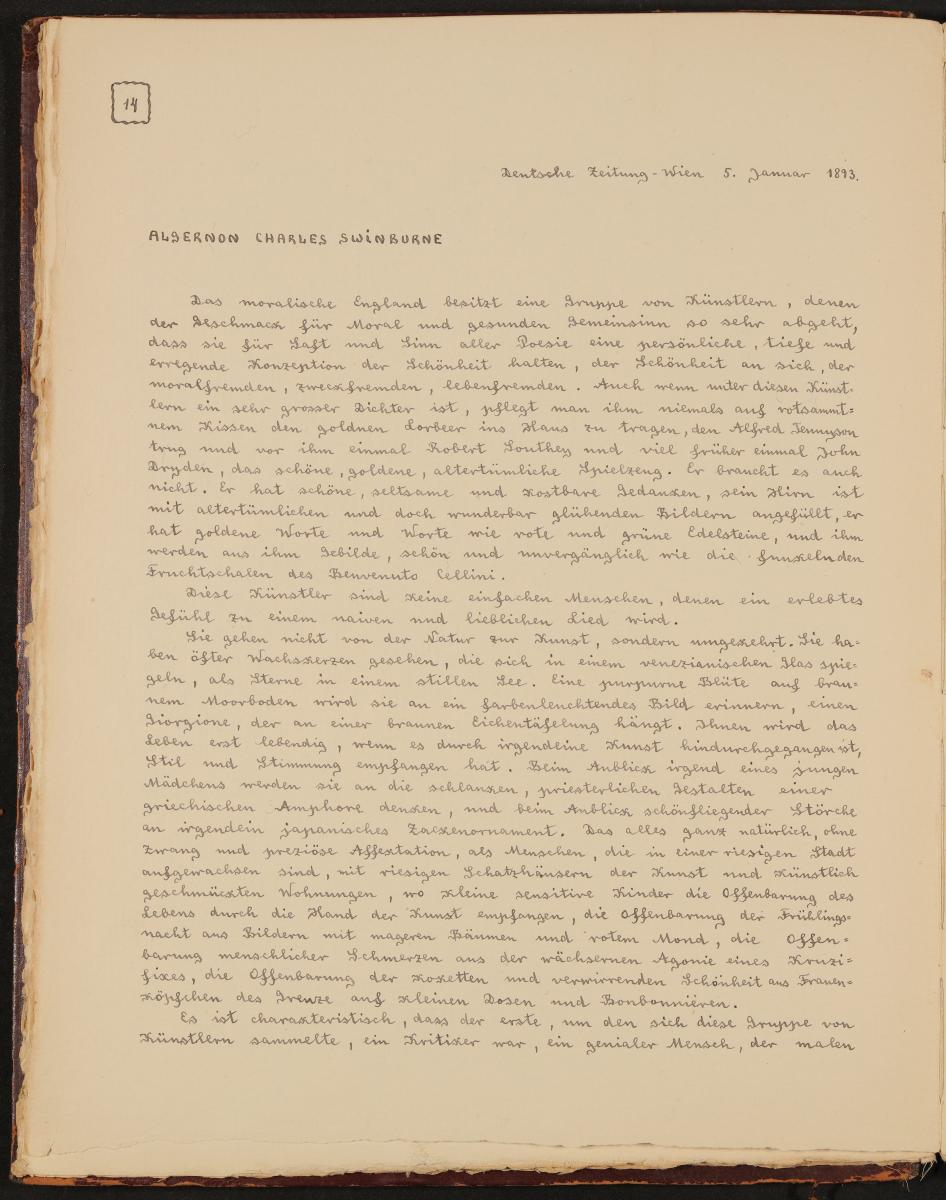 14
Deutsche Zeitung-Wien 5. Januar 1893.
ALGERNON CHARLES SWINBURNE
Das moralische England besitzt eine Gruppe von Künstlern, denen
der Geschmack für Moral und gesunden Gemeinsinn so sehr abgeht,
dass sie für Saft und Sinn aller Poesie eine persönliche, tiefe und
erregende Konzeption der Schönheit halten, der Schönheit an sich, der
moralfremden, zweckfremden, lebenfremden. Auch wenn unter diesen Künst=
lern ein sehr grosser Dichter ist, pflegt man ihm niemals auf rotsammt=
nem Kissen den goldnen Lorbeer ins Haus zu tragen, den Alfred Tennyson
trug und vor ihm einmal Robert Southey und viel früher einmal John
Dryden, das schöne, goldene, altertümliche Spielzeug. Er braucht es auch
nicht. Er hat schöne, seltsame und kostbare Gedanken, sein Hirn ist
mit altertümlichen und doch wunderbar glühenden Bildern angefüllt, er
hat goldene Worte und Worte wie rote und grüne Edelsteine, und ihm
werden aus ihm Gebilde, schön und unvergänglich wie die funkelnden
Fruchtschalen des Benvenuto Cellini.
Diese Künstler sind keine einfachen Menschen, denen ein erlebtes
Gefühl zu einem naiven und lieblichen Lied wird.
Sie gehen nicht von der Natur zur Kunst, sondern umgekehrt. Sie ha=
ben öfter Wachskerzen gesehen, die sich in einem venezianischen Glas spie=
geln, als Sterne in einem stillen See. Eine purpurne Blüte auf brau=
nem Moorboden wird sie an ein farbenleuchtendes Bild erinnern, einen
Giorgione, der an einer braunen Eichentäfelung hängt. Ihnen wird das
Leben erst lebendig, wenn es durch irgendeine Kunst hindurchgegangen ist,
Stil und Stimmung empfangen hat. Beim Anblick irgend eines jungen
Mädchens werden sie an die schlanken, priesterlichen Gestalten einer
griechischen Amphore denken, und beim Anblick schönfliegender Störche
an irgendein japanisches Zackenornament. Das alles ganz natürlich, ohne
Zwang und preziöse Affektation, als Menschen, die in einer riesigen Stadt
aufgewachsen sind, mit riesigen Schatzhäusern der Kunst und künstlich
geschmückten Wohnungen, wo kleine sensitive Kinder die Offenbarung des
Lebens durch die Hand der Kunst empfangen, die Offenbarung der Frühlings=
nacht aus Bildern mit mageren Bäumen und rotem Mond, die Offen=
barung menschlicher Schmerzen aus der wächsernen Agonie eines Kruzi=
fixes, die Offenbarung der koketten und verwirrenden Schönheit aus Frauen=
köpfchen des Greuze auf kleinen Dosen und Bonbonnièren.
Es ist charakteristisch, dass der erste, um den sich diese Gruppe von
Künstlern sammelte, ein Kritiker war, ein genialer Mensch, der malen